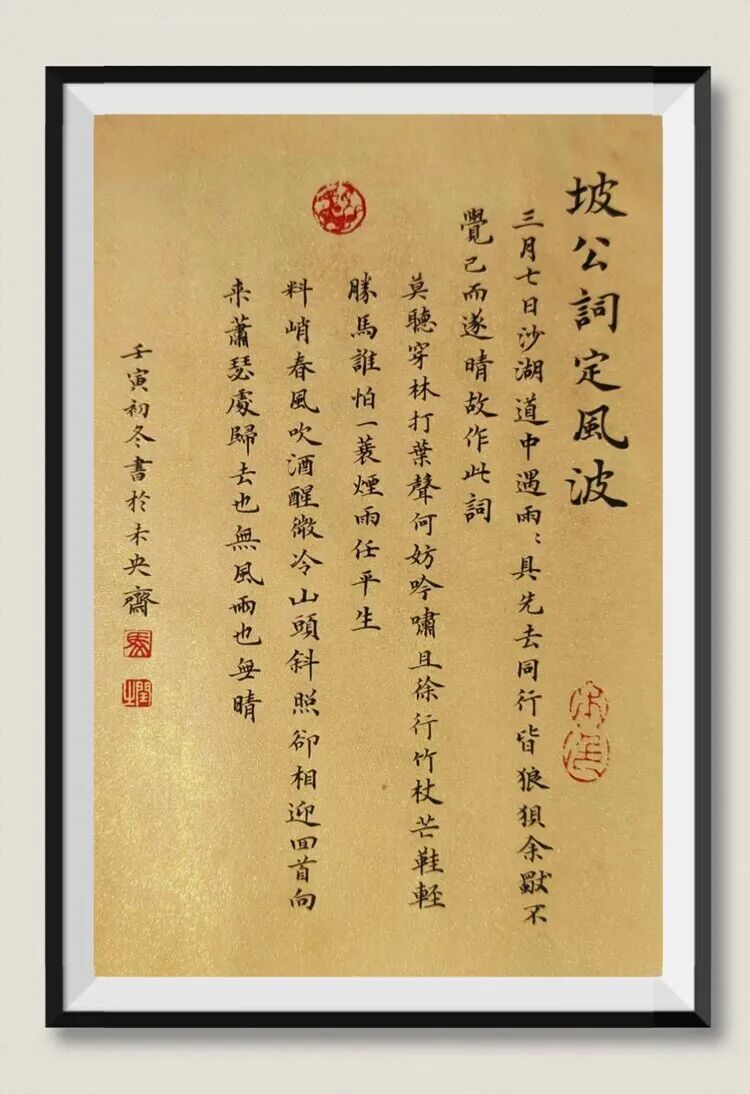 坡公詞定風波
三月七日沙湖道中遇雨〻具先去同行皆狼狽余獸不
覺已而遂晴故作此詞
莫聽穿林打葉聲何妨吟嘯且徐行竹杖芒鞋輕
勝馬誰怕一蓑煙雨任平生
料峭春風吹酒醒微冷山頭斜照卻相迎回首向
来蕭瑟處歸去也無風雨也無晴
壬寅初冬書於未央齋